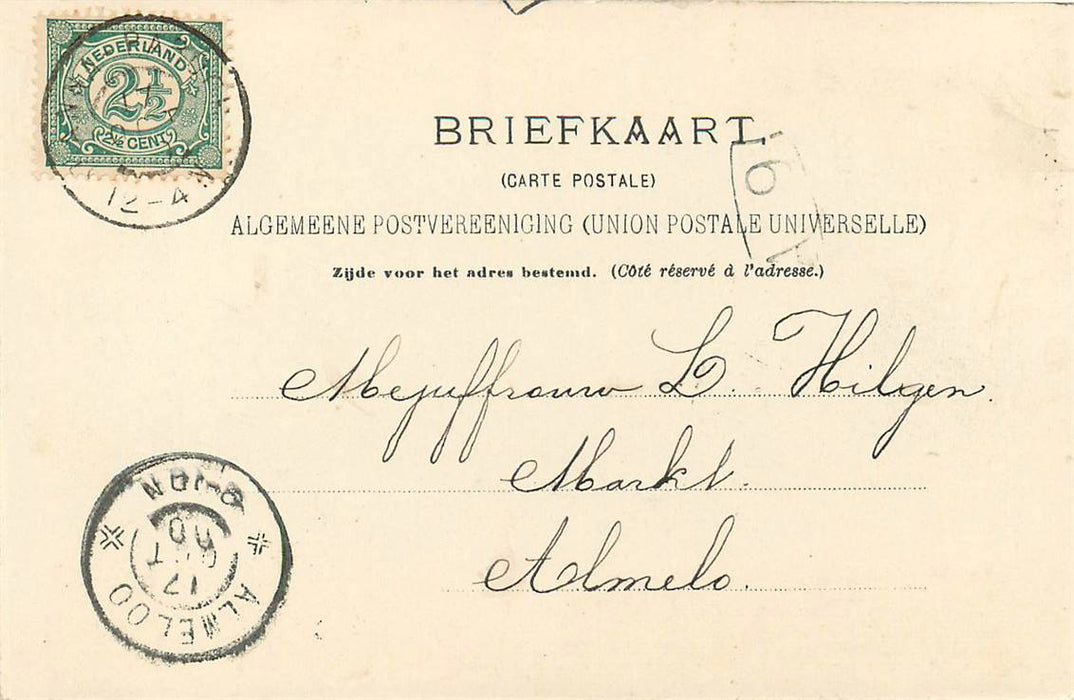 NEDERLAND
2½
2½ CENT
12-4N
BRIEFKAART.
(CARTE POSTALE)
ALGEMEENE POSTVEREENIGING (UNION POSTALE UNIVERSELLE)
Zijde voor het adres bestemd. (Côté réservé à l'adresse.)
Mejuffrouw L. Hilgen.
Markt.
Almelo.
ALMELOO
17